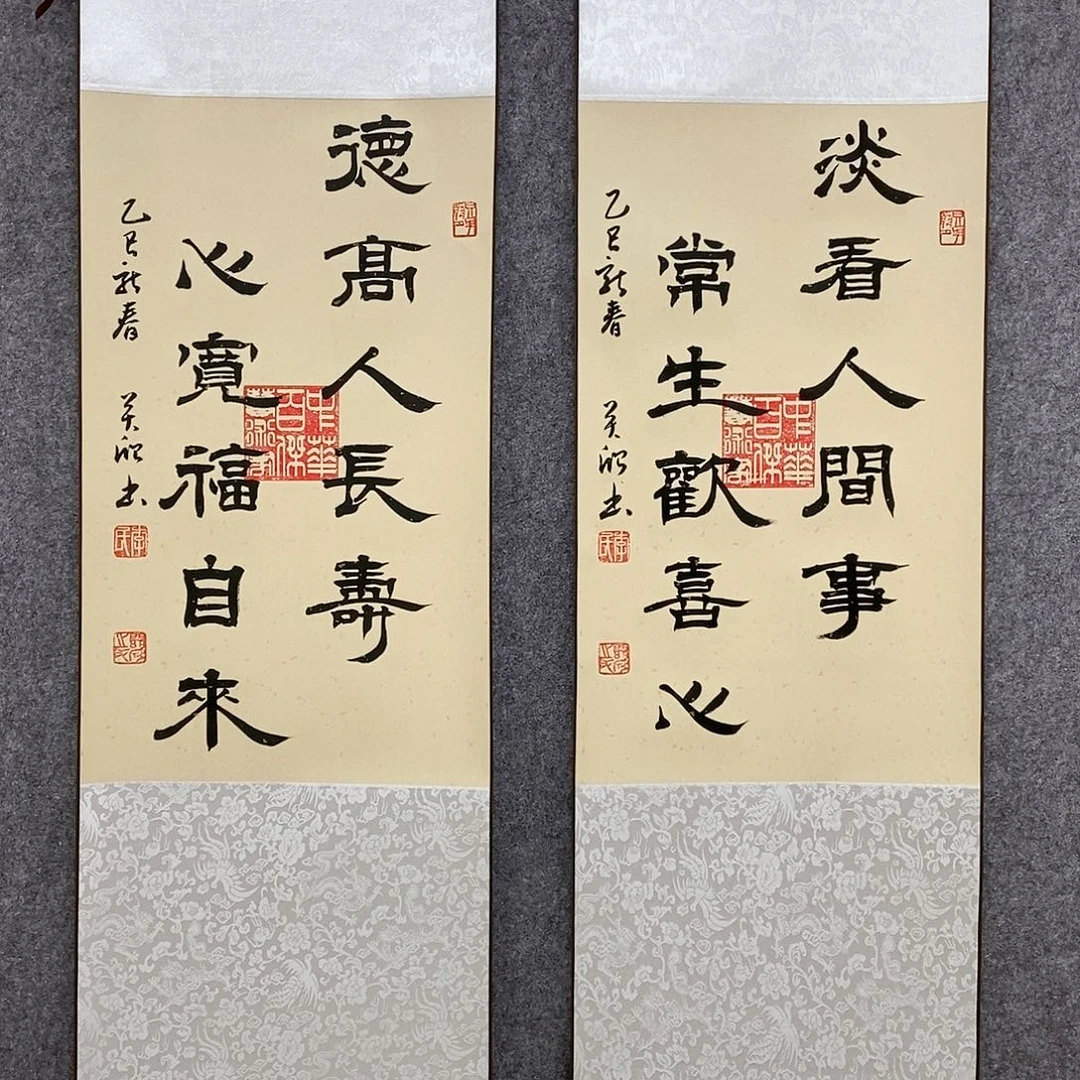 淡看人間事
常生歡喜心
乙巳新春
德高人長壽
心寬福自來
乙巳新春
中華百傑